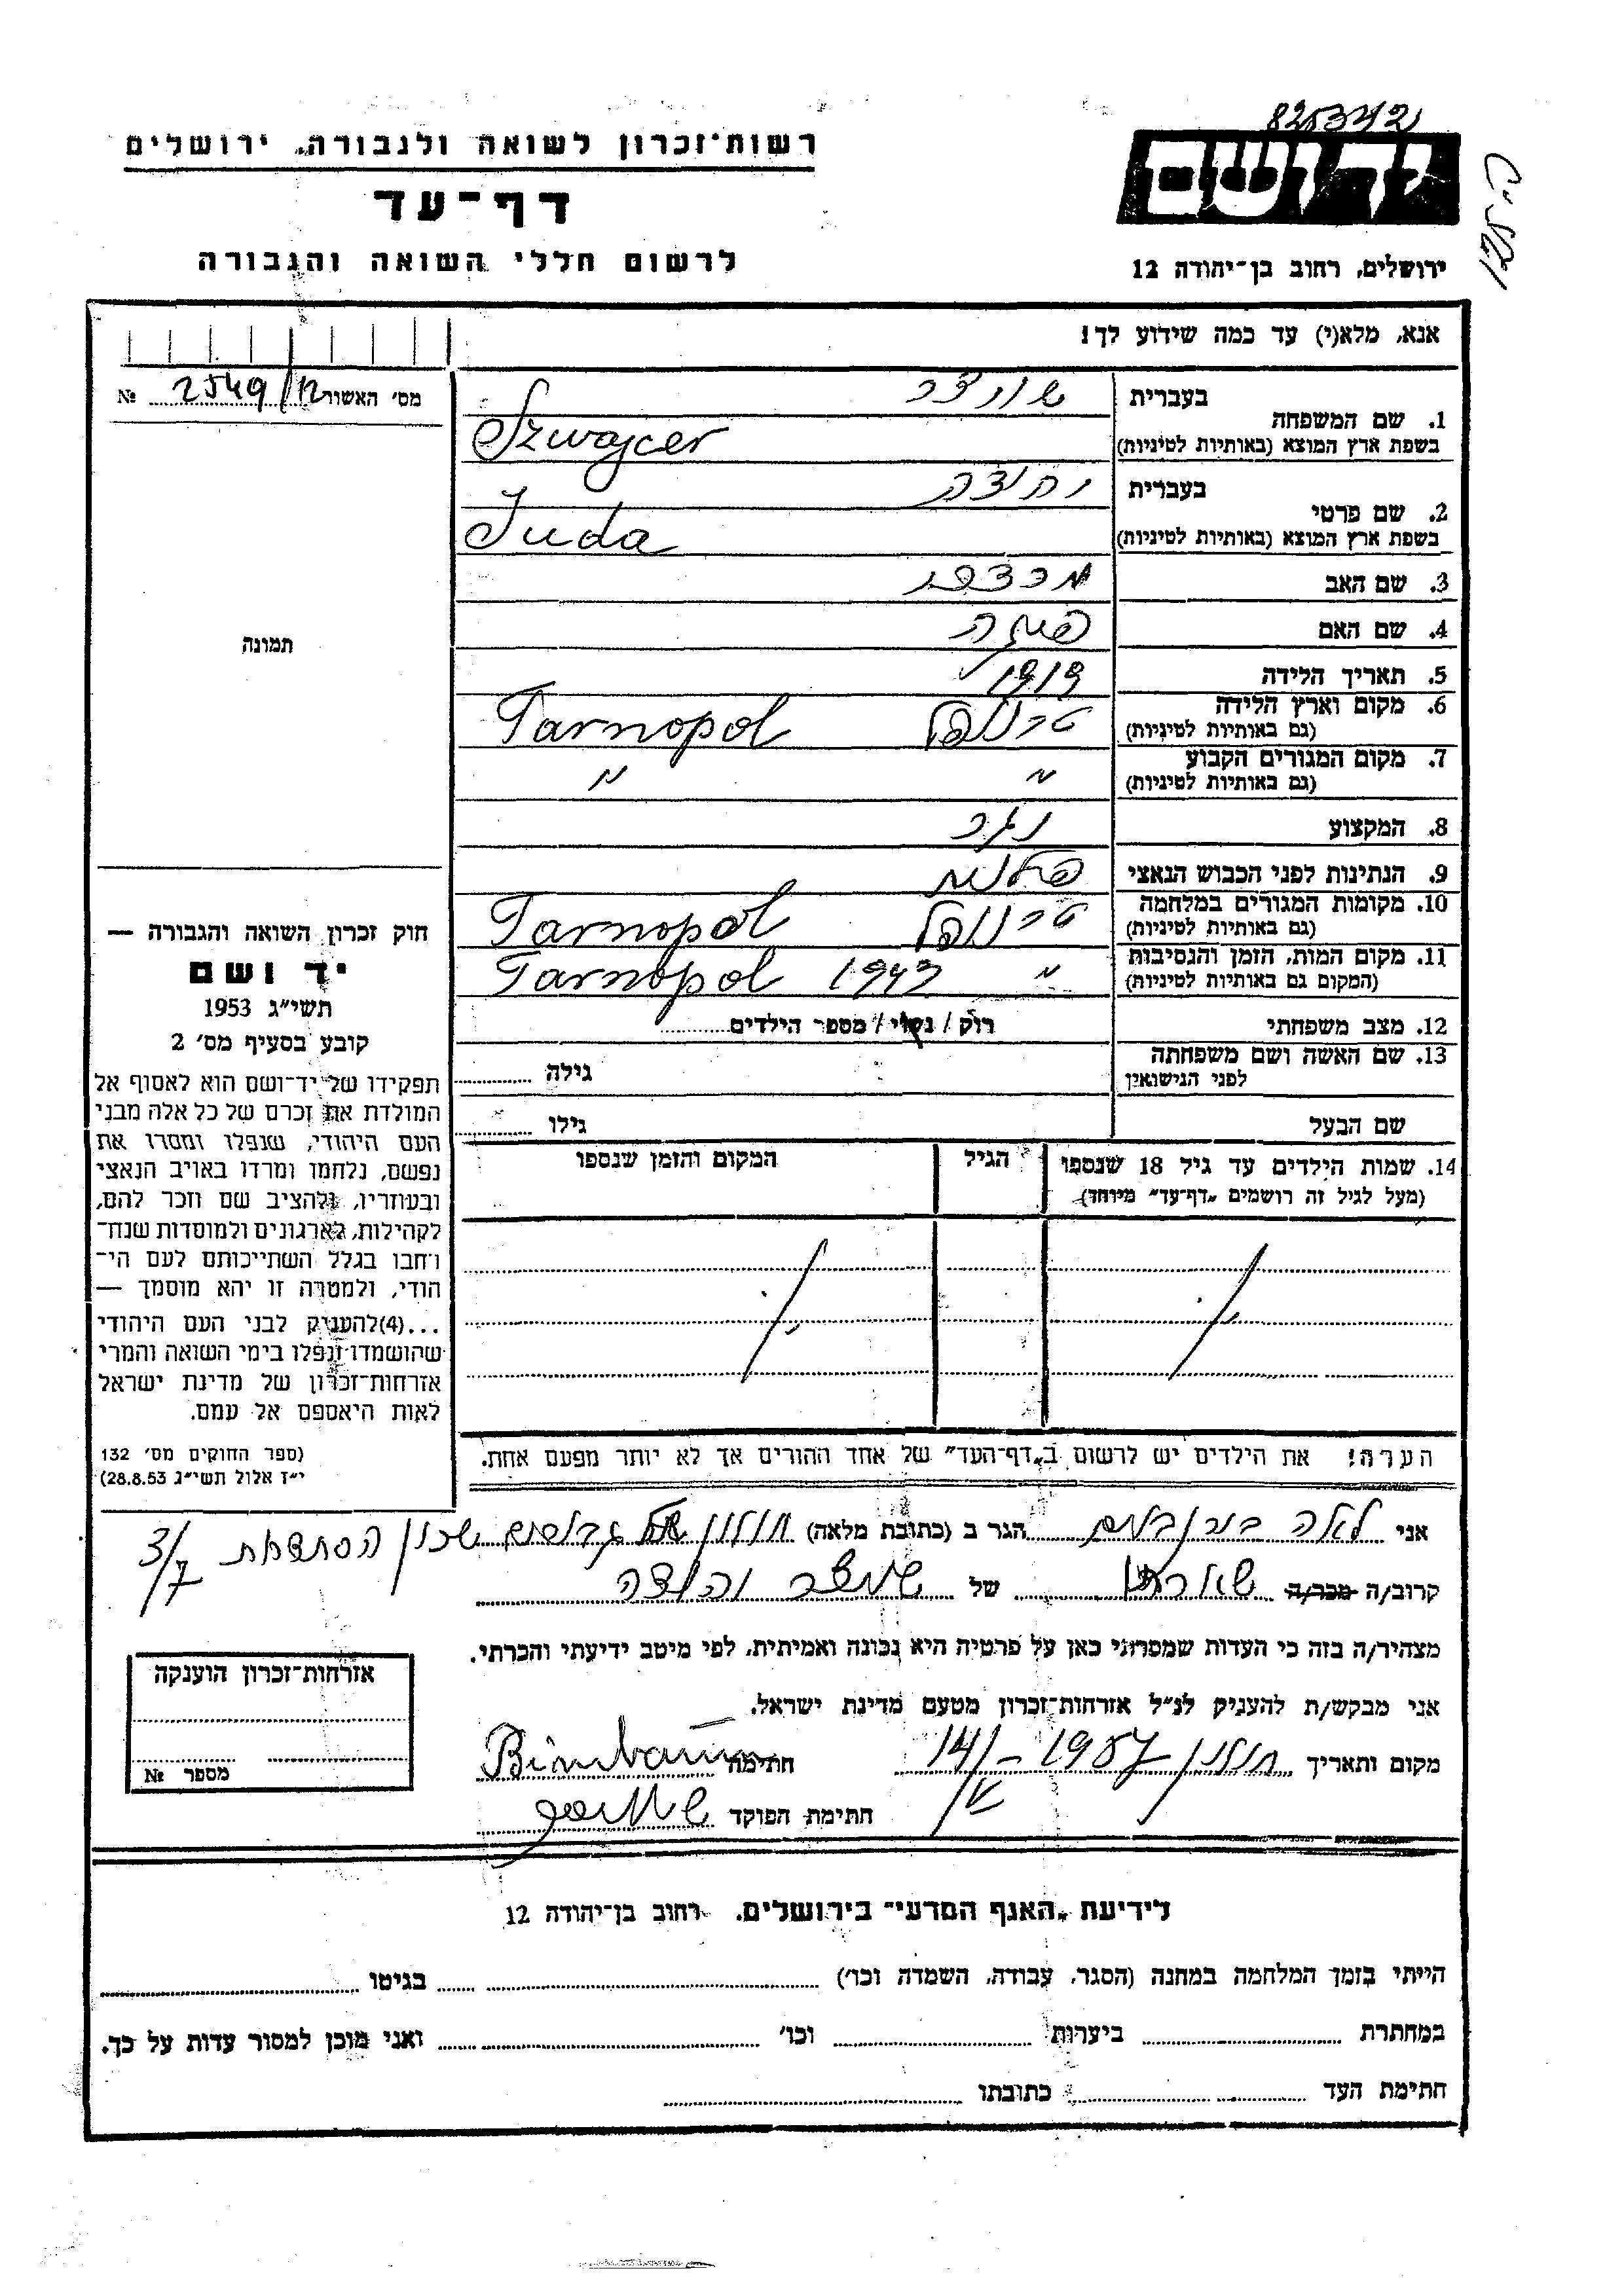 825342
רשות־זכרון לשואה ולגבורה, ירושלים
דף־עד
לרשום חללי השואה והגבורה
יד ושם
ירושלים, רחוב בן־יהודה 12
אנא, מלא(י) עד כמה שידוע לך!
מס׳ האשור 2549/12 №
תמונה
1. שם המשפחה
בעברית
בשפת ארץ המוצא (באותיות לטיניות) Szwajcer
2. שם פרטי
בעברית יהודה
בשפת ארץ המוצא (באותיות לטיניות) Juda
3. שם האב
4. שם האם
5. תאריך הלידה 1919
6. מקום וארץ הלידה טרנופול Tarnopol
(גם באותיות לטיניות)
7. מקום המגורים הקבוע " "
(גם באותיות לטיניות)
8. המקצוע נגר
9. הנתינות לפני הכבוש הנאצי פולנית
10. מקומות המגורים במלחמה טרנופול Tarnopol
(גם באותיות לטיניות)
11. מקום המות, הזמן והנסיבות " 1943 Tarnopol
(המקום גם באותיות לטיניות)
12. מצב משפחתי רוק / נשוי / מספר הילדים
13. שם האשה ושם משפחתה
לפני הנישואין גילה
שם הבעל גילו
14. שמות הילדים עד גיל 18 שנספו הגיל המקום והזמן שנספו
(מעל לגיל זה רושמים „דף־עד״ מיוחד)
הערה! את הילדים יש לרשום ב„דף־העד״ של אחד ההורים אך לא יותר מפעם אחת.
חוק זכרון השואה והגבורה —
יד ושם
תשי״ג 1953
קובע בסעיף מס׳ 2
תפקידו של יד־ושם הוא לאסוף אל
המולדת את זכרם של כל אלה מבני
העם היהודי, שנפלו ומסרו את
נפשם, נלחמו ומרדו באויב הנאצי
ובעוזריו, ולהציב שם וזכר להם,
לקהילות, לארגונים ולמוסדות שנח־
רבו בגלל השתייכותם לעם הי־
הודי, ולמטרה זו יהא מוסמך —
...(4)להעניק לבני העם היהודי
שהושמדו ונפלו בימי השואה והמרי
אזרחות־זכרון של מדינת ישראל
לאות היאספם אל עמם.
(ספר החוקים מס׳ 132
י״ז אלול תשי״ג 28.8.53)
אני לאה בירנבוים הגר ב (כתובת מלאה) חולון שכון הסתדרות 3/7
קרוב/ה מכר/ה של יהודה
מצהיר/ה בזה כי העדות שמסרתי כאן על פרטיה היא נכונה ואמיתית, לפי מיטב ידיעתי והכרתי.
אני מבקש/ת להעניק לנ״ל אזרחות־זכרון מטעם מדינת ישראל.
מקום ותאריך חולון 1957 חתימה Birnbaum
חתימת הפוקד
אזרחות־זכרון הוענקה
מספר №
לידיעת „האגף המדעי״ בירושלים, רחוב בן־יהודה 12
הייתי בזמן המלחמה במחנה (הסגר, עבודה, השמדה וכו׳) בגיטו
במחתרת ביערות וכו׳ ואני מוכן למסור עדות על כך.
חתימת העד כתובתו